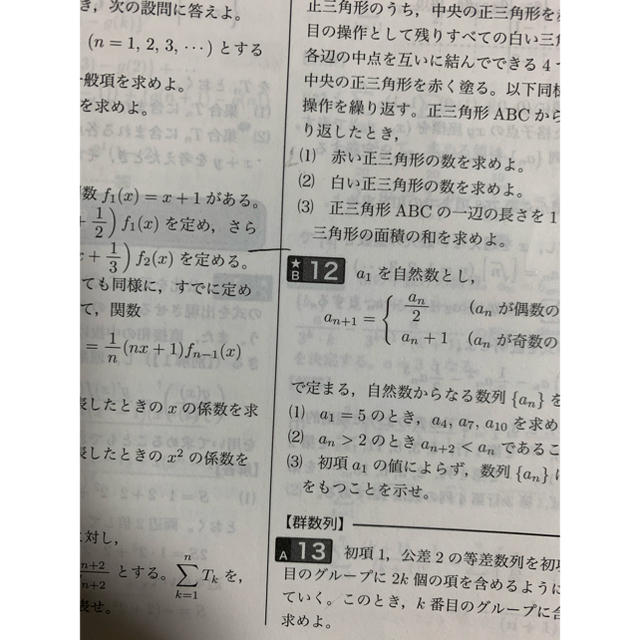 き，次の設問に答えよ。
(n = 1, 2, 3, ···) とする
一般項を求めよ。
を求めよ。
数 f₁(x) = x + 1 がある。
+ 1/2) f₁(x) を定め，さら
x + 1/3) f₂(x) を定める。
ても同様に，すでに定め
て，関数
= 1/n (nx + 1)fₙ₋₁(x)
表したときの x の係数を求
表したときの x² の係数を
に対し，
n+2/n+2 とする。∑ⁿₖ₌₁ Tₖ を，
表せ。
正三角形のうち，中央の正三角形を
目の操作として残りすべての白い三
各辺の中点を互いに結んでできる 4
中央の正三角形を赤く塗る。以下同様
操作を繰り返す。正三角形 ABC から
り返したとき，
(1) 赤い正三角形の数を求めよ。
(2) 白い正三角形の数を求めよ。
(3) 正三角形 ABC の一辺の長さを 1
三角形の面積の和を求めよ。
★B 12 a₁ を自然数とし，
aₙ₊₁ = { aₙ/2 (aₙ が偶数の
aₙ + 1 (aₙ が奇数の
で定まる，自然数からなる数列 {aₙ} を
(1) a₁ = 5 のとき，a₄, a₇, a₁₀ を求め
(2) aₙ > 2 のとき aₙ₊₂ < aₙ であるこ
(3) 初項 a₁ の値によらず，数列 {aₙ} は
をもつことを示せ。
【群数列】
A 13 初項 1，公差 2 の等差数列を初項
目のグループに 2k 個の項を含めるように
ていく。このとき，k 番目のグループに含
求めよ。